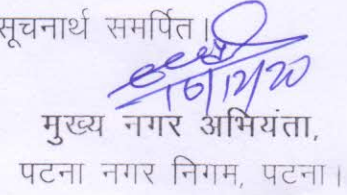 सूचनार्थ समर्पित।
16/12/20
मुख्य नगर अभियंता,
पटना नगर निगम, पटना।